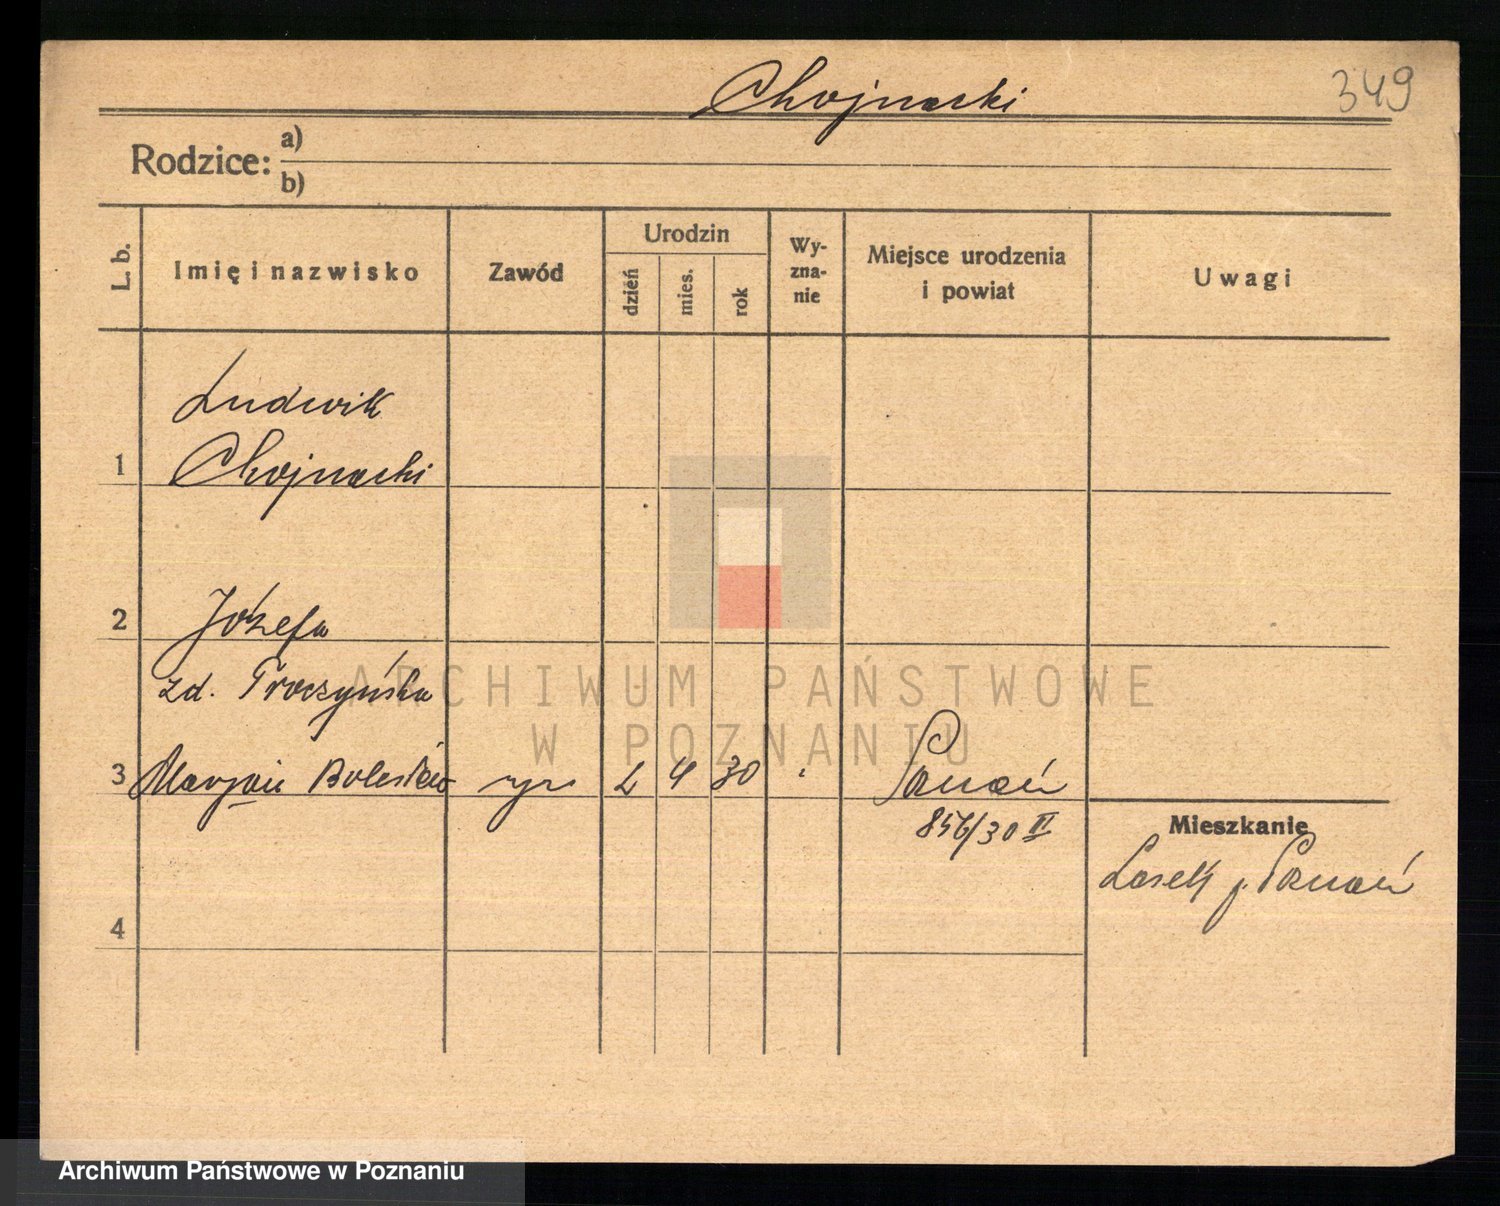 Chojnacki
349
Rodzice: a)
b)
L. b.
Imię i nazwisko
Zawód
Urodzin
dzień
mies.
rok
Wy-
zna-
nie
Miejsce urodzenia
i powiat
Uwagi
Ludwik
1 Chojnacki
2 Józefa
zd. Troczyńska
3 Marjan Bolesław syn 2 4 30 Poznań
856/30 II
Mieszkanie
Lasek p. Poznań
4
ARCHIWUM PAŃSTWOWE
W POZNANIU
Archiwum Państwowe w Poznaniu